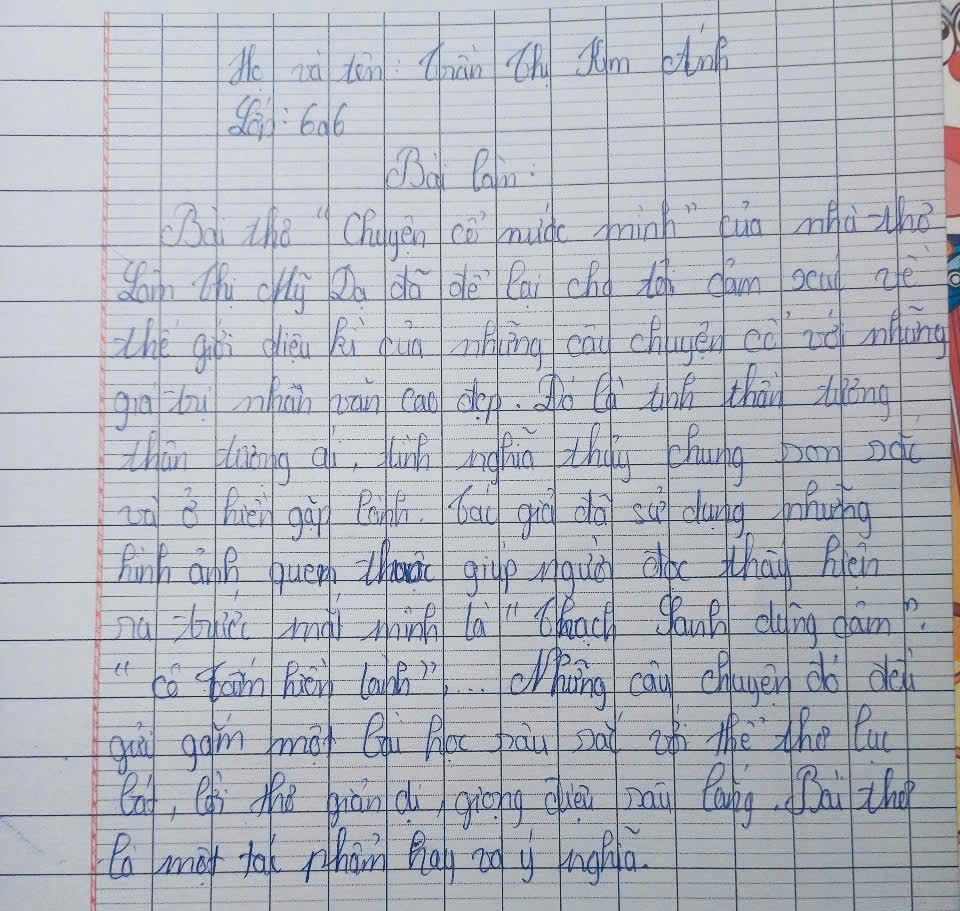 Họ và tên: Trần Thị Kim Ánh
Lớp: 6a6
Bài làm:
Bài thơ "Chuyện cổ nước mình" của nhà thơ
Lâm Thị Mỹ Dạ đã để lại cho tôi cảm xúc về
thế giới diệu kì của những câu chuyện cổ với những
giá trị nhân văn cao đẹp. Đó là tinh thần tương
thân tương ái, tình nghĩa thủy chung son sắc
và ở hiền gặp lành. Tác giả đã sử dụng những
hình ảnh quen thuộc giúp người đọc thấy hiện
ra trước mắt mình là "Thạch Sanh dũng cảm".
"cô Tấm hiền lành",... Những câu chuyện đó đều
gửi gắm một bài học sâu sắc với thể thơ lục
bát, lời thơ giản dị, giọng điệu sâu lắng. Bài thơ
là một tác phẩm hay và ý nghĩa.